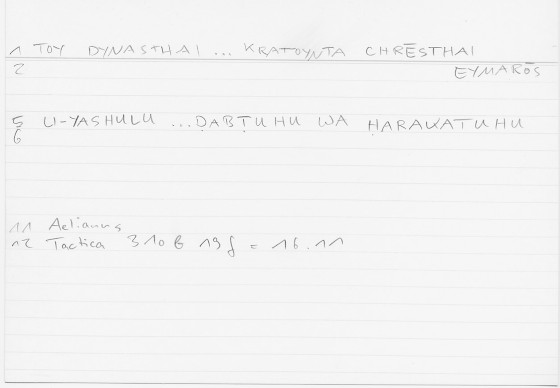 1 TOY DYNASTHAI ... KRATOYNTA CHRĒSTHAI
2 EYMARŌS
5 LI-YASHULU ... ḌABṬUHU WA ḤARAKATUHU
6
11 Aelianus
12 Tactica 310 b 19 f = 16.11